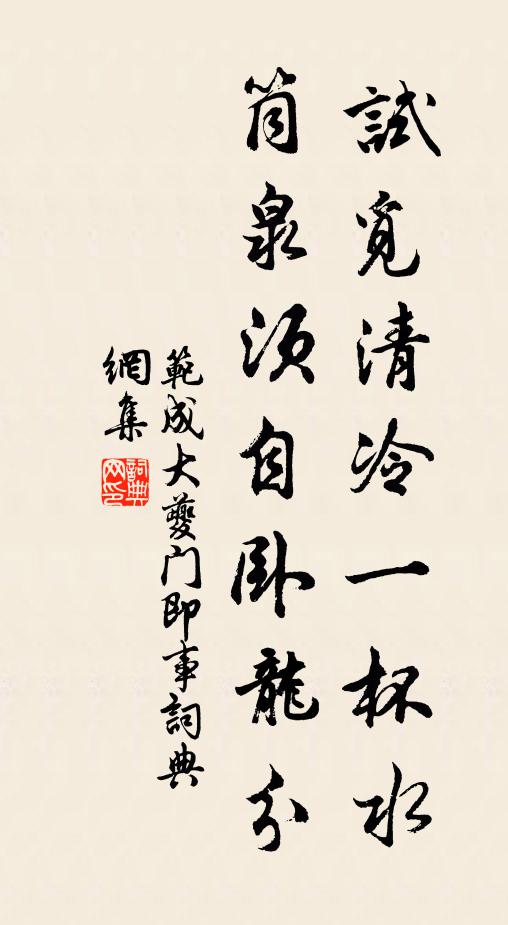 試覓清冷一杯水
筒泉須自臥龍分
範成大夔门即事詞典
網集
詞典
网印